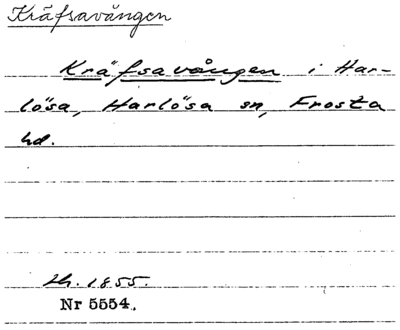 Kräfsavången
Kräfsavången i Har-
lösa, Harlösa sn, Frosta
hd.
1855.
Nr 5554.